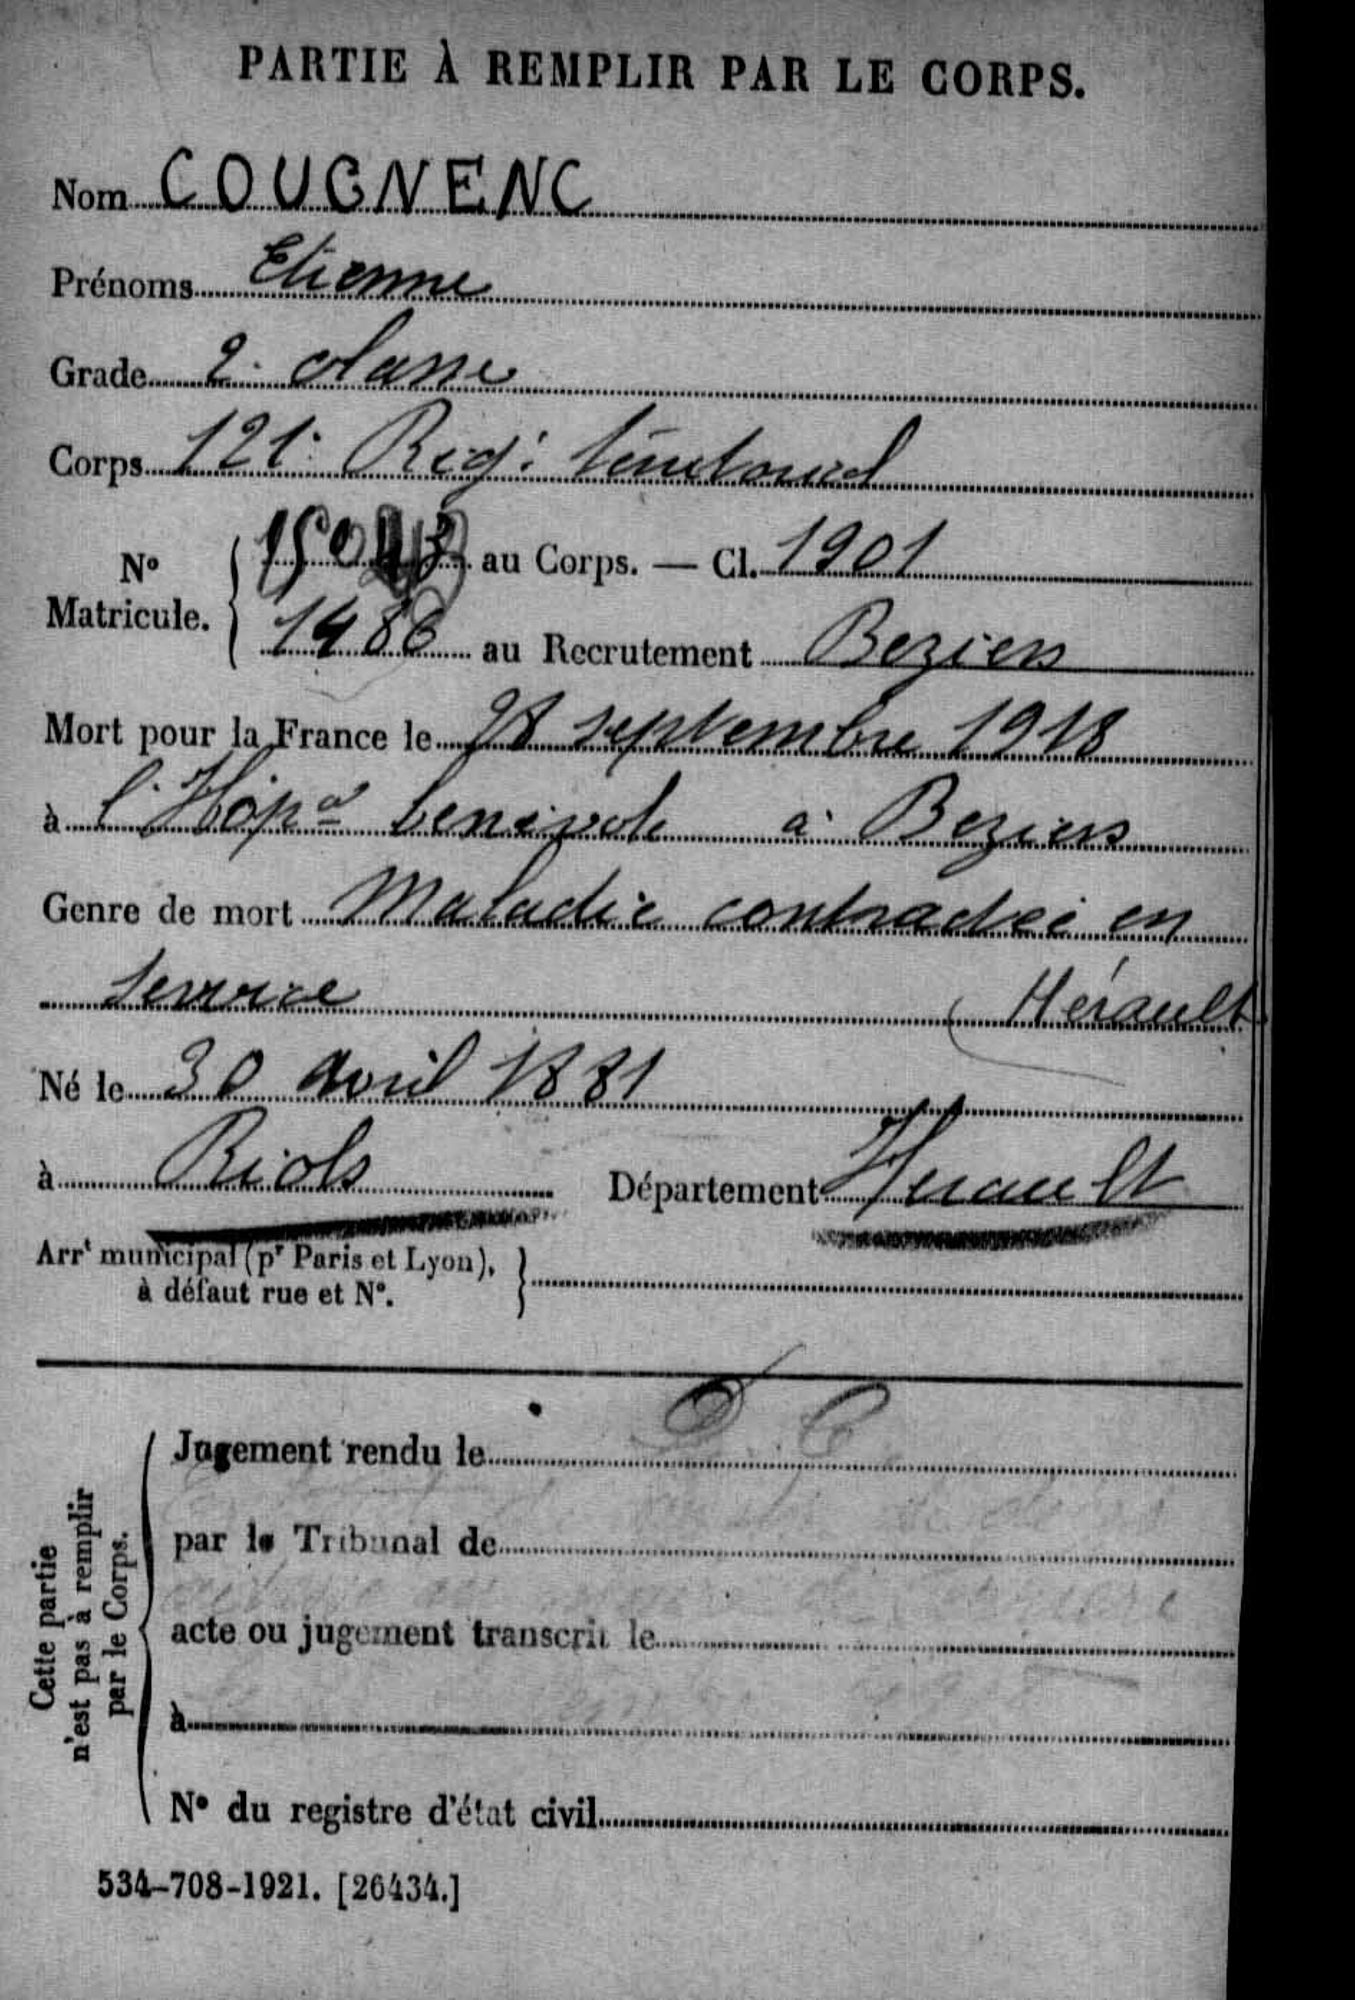 PARTIE À REMPLIR PAR LE CORPS.
Nom COUGNENC
Prénoms Etienne
Grade 2e classe
Corps 121e Regt territorial
No Matricule. { au Corps. — Cl. 1901
1486 au Recrutement Beziers
Mort pour la France le 28 septembre 1918
à l'Hôpal benevole à Beziers
Genre de mort Maladie contractée en
service Hérault
Né le 30 avril 1881
à Riols Département Herault
Arrt municipal (pr Paris et Lyon), à défaut rue et No. }
Cette partie n'est pas à remplir par le Corps.
Jugement rendu le
par le Tribunal de
acte ou jugement transcrit le
à
No du registre d'état civil
534-708-1921. [26434.]